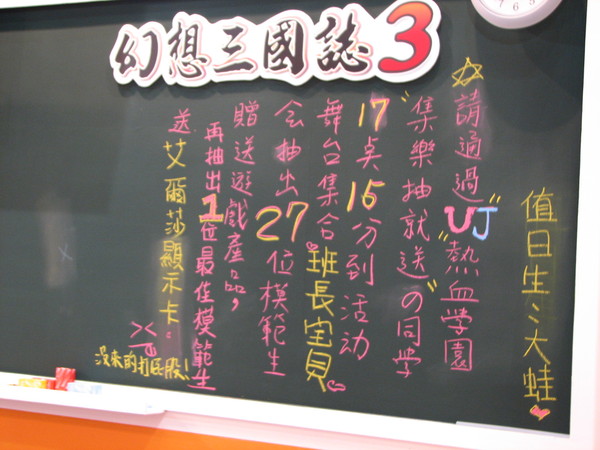 幻想三國誌3
值日生:大蛙
☆請通過"UJ"熱血学園
"集樂抽就送"の同学
17点15分到活动
舞台集合班長宝貝
会抽出27位模範生
贈送遊戲產品,
再抽出1位最佳模範生
送艾爾莎顯示卡。
沒來的打屁股!